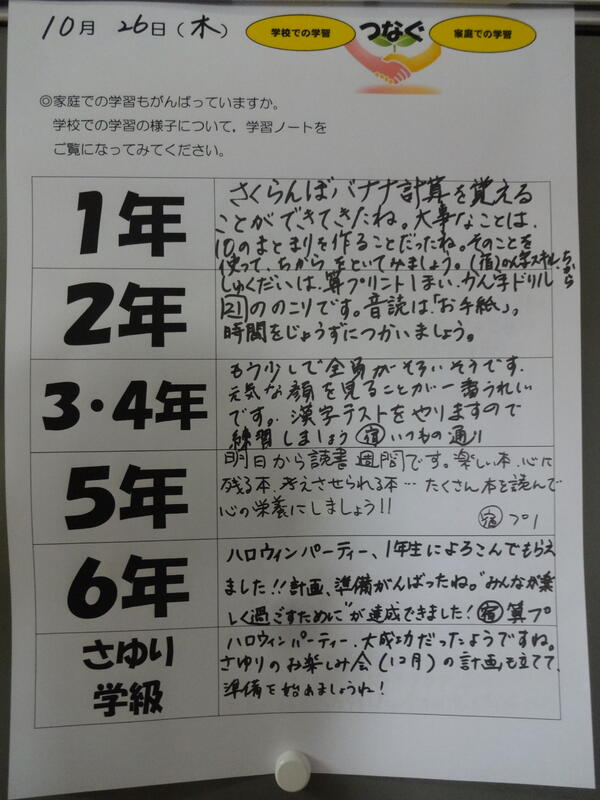 10月 26日(木)
学校での学習
つなぐ
家庭での学習
◎家庭での学習もがんばっていますか。
学校での学習の様子について,学習ノートを
ご覧になってみてください。
1年
さくらんぼバナナ計算を覚える
ことができてきたね。大事なことは、
10のまとまりを作ることだったね。そのことを
使って、ちからをといてみましょう。(宿)かん字スキル、ちから
2年
しゅくだいは、算プリント1まい、かん字ドリル
21ののこりです。音読は「お手紙」。
時間をじょうずにつかいましょう。
3・4年
もう少しで全員がそろいそうです。
元気な顔を見ることが一番うれしい
です。漢字テストをやりますので
練習しましょう 宿 いつもの通り
5年
明日から読書週間です。楽しい本、心に
残る本、考えさせられる本…たくさん本を読んで
心の栄養にしましょう!!
宿 プリ
6年
ハロウィンパーティー、1年生によろこんでもらえ
ました!!計画、準備がんばったね。"みんなが楽
しく過ごすために"が達成できました!宿 算プ
さゆり
学級
ハロウィンパーティー、大成功だったようですね。
さゆりのお楽しみ会(12月)の計画も立てて、
準備を始めましょうね!